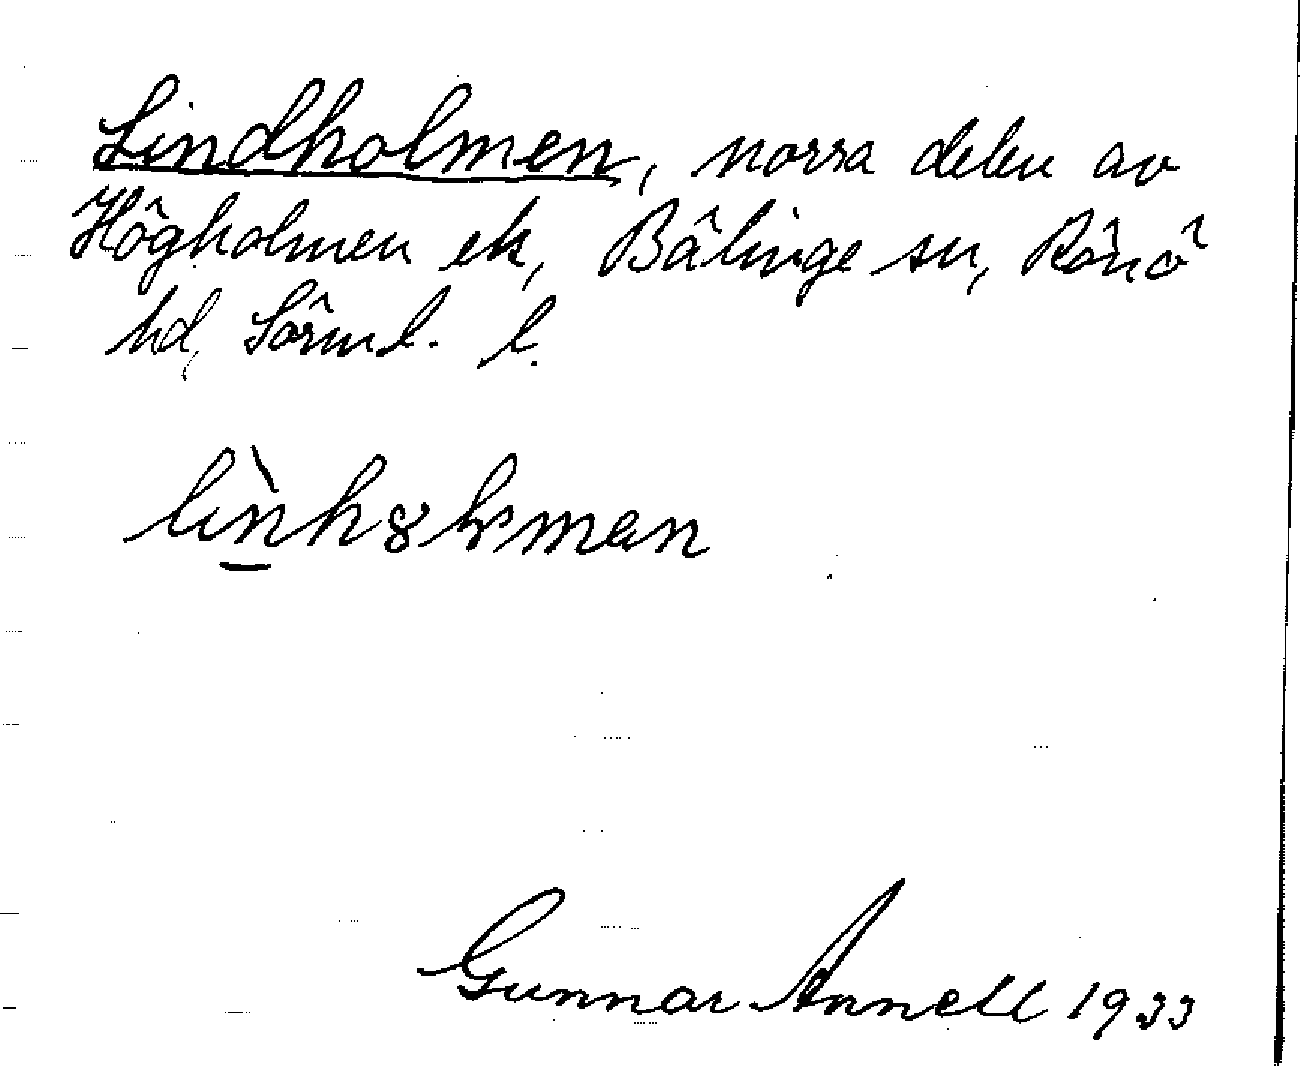 Lindholmen, norra delen av
Högholmen ek, Bälinge sn, Rönö
hd, Sörml. l.
Gunnar Annell 1933